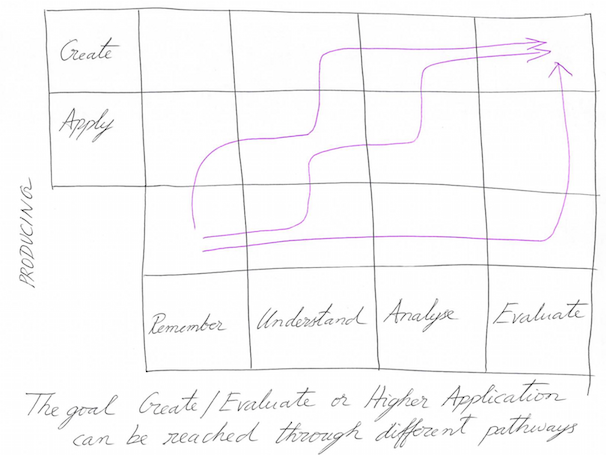 Create
Apply
PRODUCING
Remember Understand Analyse Evaluate
The goal Create/Evaluate or Higher Application
can be reached through different pathways